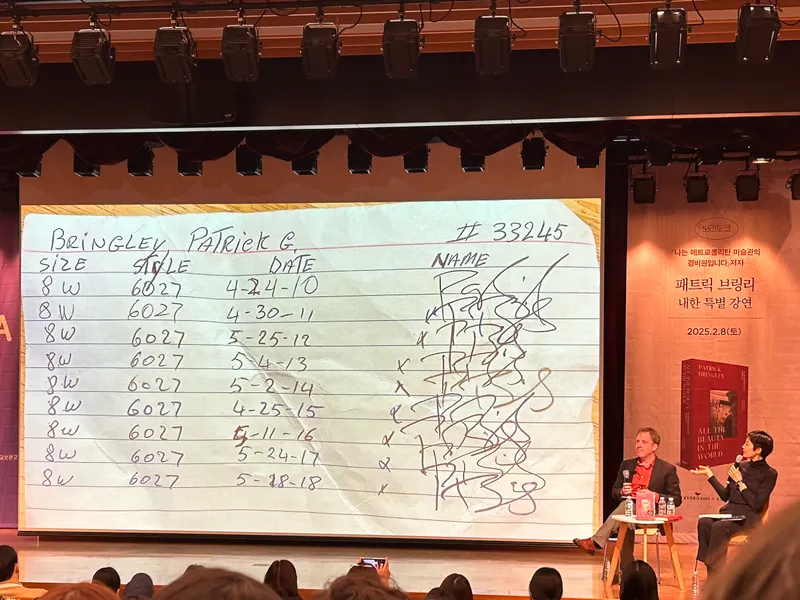 BRINGLEY, PATRICK G. # 33245
SIZE STYLE DATE NAME
8W 6027 4-24-10
8W 6027 4-30-11 x
8W 6027 5-25-12 x
8W 6027 5-4-13 x
8W 6027 5-2-14 x
8W 6027 4-25-15 x
8W 6027 5-11-16 x
8W 6027 5-24-17 x
8W 6027 5-18-18 x
보라토크
『나는 메트로폴리탄 미술관의
경비원입니다』 저자
패트릭 브링리
내한 특별 강연
2025.2.8(토)
PATRICK
BRINGLEY
ALL THE
BEAUTY
IN THE
WORLD